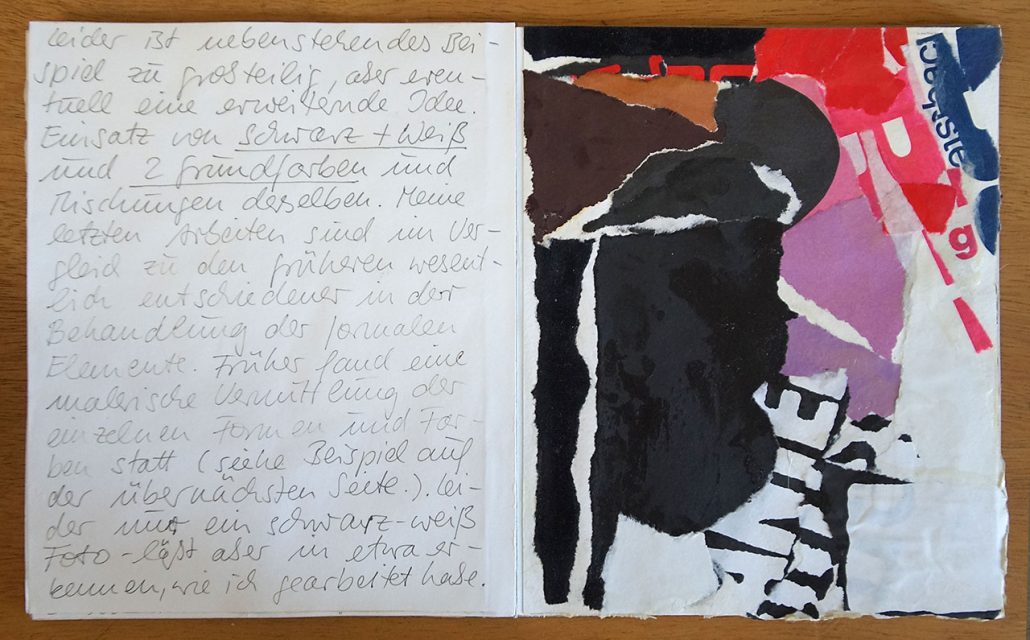 Leider ist nebenstehendes Bei-
spiel zu großteilig, aber even-
tuell eine erweiternde Idee.
Einsatz von schwarz + Weiß
und 2 Grundfarben und
Mischungen derselben. Meine
letzten Arbeiten sind im Ver-
gleich zu den früheren wesent-
lich entschiedener in der
Behandlung der formalen
Elemente. Früher fand eine
malerische Vermittlung der
einzelnen Formen und Far-
ben statt (siehe Beispiel auf
der übernächsten Seite.). Lei-
der nur ein schwarz-weiß
Foto - läßt aber in etwa er-
kennen, wie ich gearbeitet habe.
g